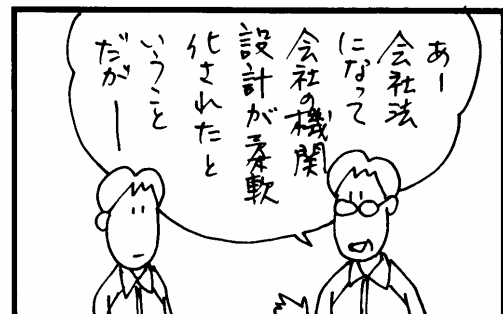 あー
会社法
になって
会社の機関
設計が柔軟
化されたと
いうこと
だがー